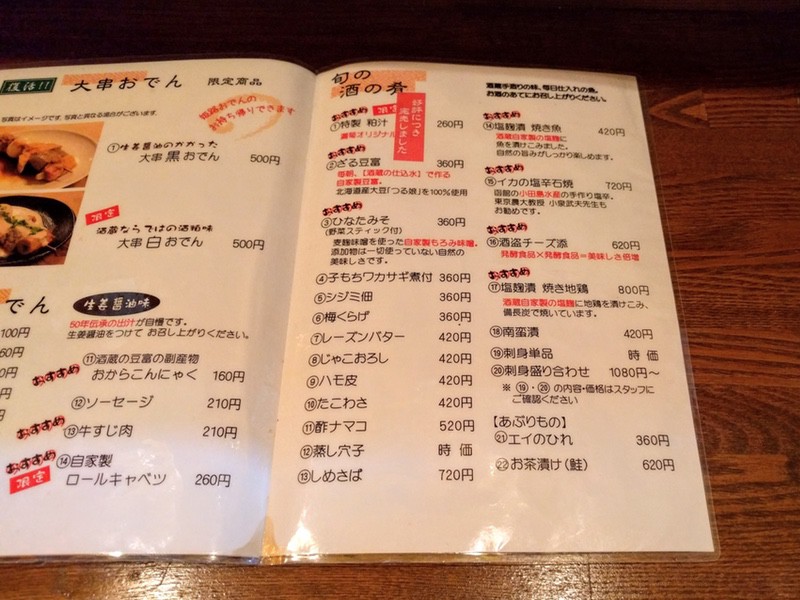 復活!! 大串おでん 限定商品
写真はイメージです。写真と異なる場合がございます。
姫路おでんの
お持ち帰りできます
①生姜醤油のかかった
大串 黒 おでん 500円
限定
酒蔵ならではの酒粕味
大串 白 おでん 500円
でん 生姜醤油味
50年伝承の出汁が自慢です。
生姜醤油をつけて お召し上がりください。
100円
60円
⑪酒蔵の豆腐の副産物
おすすめ おからこんにゃく 160円
⑫ソーセージ 210円
おすすめ ⑬牛すじ肉 210円
おすすめ ⑭自家製
限定 ロールキャベツ 260円
旬の
酒の肴
好評につき
完売しました
おすすめ 限定
①特製 粕汁 260円
灘菊オリジナル
おすすめ
②ざる豆富 360円
毎朝、【酒蔵の仕込水】で作る
自家製豆富。
北海道産大豆「つる娘」を100%使用
おすすめ
③ひなたみそ 360円
(野菜スティック付)
麦麹味噌を使った自家製もろみ味噌。
添加物は一切使っていない自然の
美味しさです。
④子もちワカサギ煮付 360円
⑤シジミ佃 360円
⑥梅くらげ 360円
⑦レーズンバター 420円
⑧じゃこおろし 420円
⑨ハモ皮 420円
⑩たこわさ 420円
⑪酢ナマコ 520円
⑫蒸し穴子 時 価
⑬しめさば 720円
酒蔵手造りの味、毎日仕入れの魚。
お酒のあてにお召し上がりください。
おすすめ
⑭塩麹漬 焼き魚 420円
酒蔵自家製の塩麹に
魚を漬けこみました。
自然の旨みがしっかり楽しめます。
おすすめ
⑮イカの塩辛石焼 720円
函館の小田島水産の手作り塩辛。
東京農大教授 小泉武夫先生も
お勧めです。
おすすめ
⑯酒盗チーズ添 620円
発酵食品×発酵食品=美味しさ倍増
おすすめ
⑰塩麹漬 焼き地鶏 800円
酒蔵自家製の塩麹に地鶏を漬けこみ、
備長炭で焼いています。
⑱南蛮漬 420円
⑲刺身単品 時 価
⑳刺身盛り合わせ 1080円~
※ ⑲・⑳ の内容・価格はスタッフに
ご確認ください
【あぶりもの】
㉑エイのひれ 360円
㉒お茶漬け(鮭) 620円